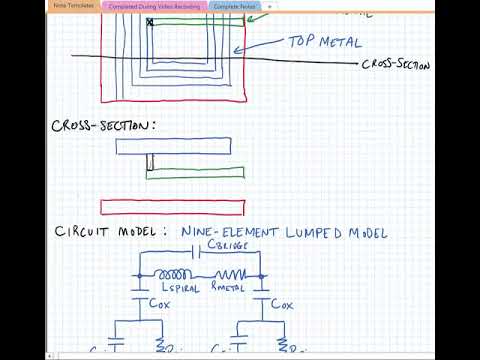 Note Templates
Completed During Video Recording
Complete Notes
TOP METAL
CROSS-SECTION
CROSS-SECTION:
CIRCUIT MODEL: NINE-ELEMENT LUMPED MODEL
CBRIDGE
LSPIRAL
RMETAL
COX
COX